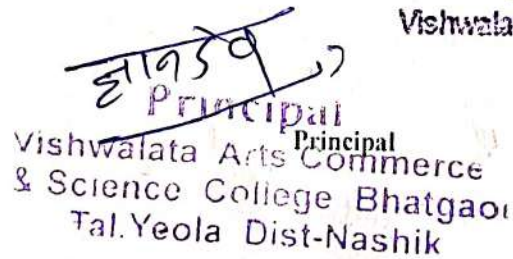 Vishwala
ज्ञानदेव
Principal
Principal
Vishwalata Arts Commerce
& Science College Bhatgaon
Tal.Yeola Dist-Nashik